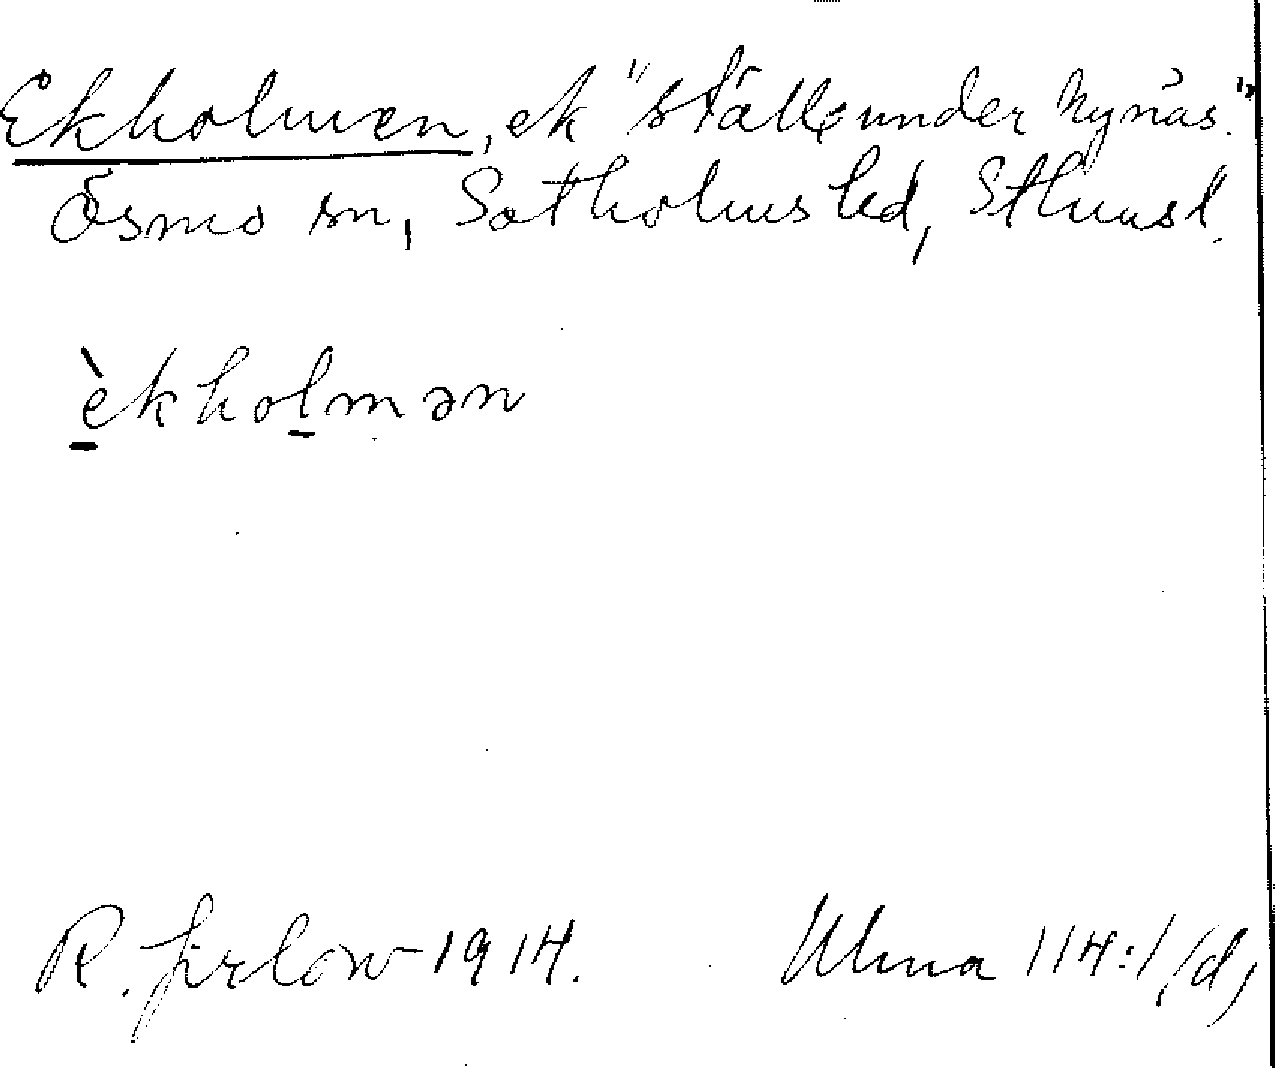 Ekholmen, ek "ställe under Nynäs."
Ösmo sn, Sotholms hd, Sthmsl.
èkholmən
R. Jirlow 1914.
Ulma 114:1 (d)